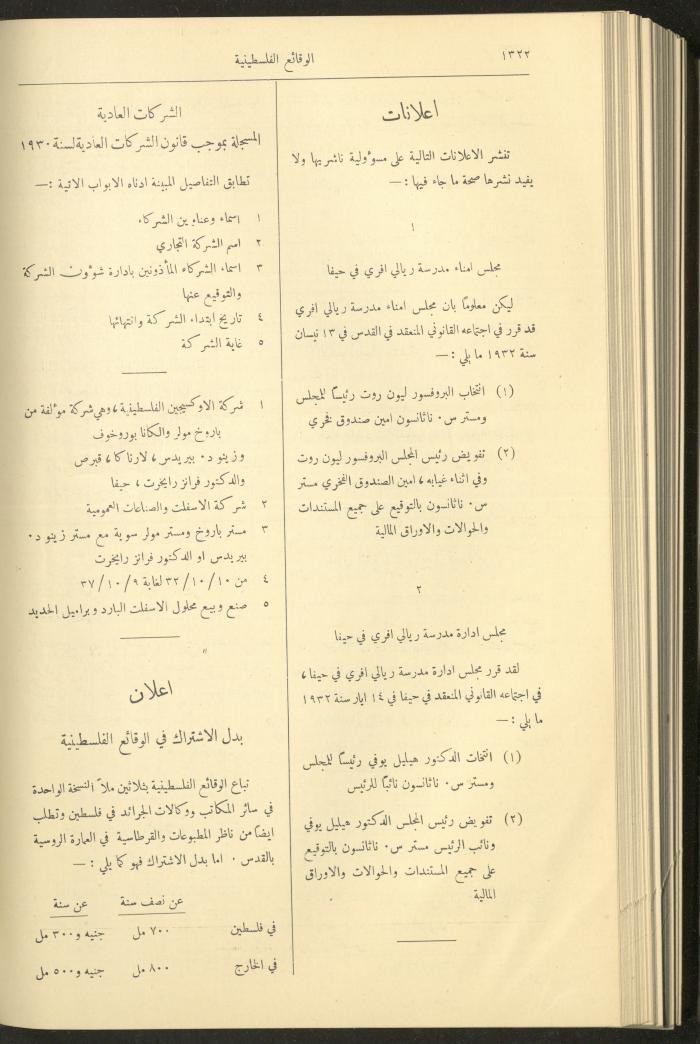 ١٣٢٢
الوقائع الفلسطينية
اعلانات
تنشر الاعلانات التالية على مسؤولية ناشريها ولا
يفيد نشرها صحة ما جاء فيها :—
١
مجلس امناء مدرسة ريالي افري في حيفا
ليكن معلومًا بان مجلس امناء مدرسة ريالي افري
قد قرر في اجتماعه القانوني المنعقد في القدس في ١٣ نيسان
سنة ١٩٣٢ ما يلي :—
(١) انتخاب البروفسور ليون روت رئيسًا للمجلس
ومستر س٠ ناثانسون امين صندوق فخري
(٢) تفويض رئيس المجلس البروفسور ليون روت
وفي اثناء غيابه، امين الصندوق الفخري مستر
س٠ ناثانسون بالتوقيع على جميع المستندات
والحوالات والاوراق المالية
٢
مجلس ادارة مدرسة ريالي افري في حيفا
لقد قرر مجلس ادارة مدرسة ريالي افري في حيفا،
في اجتماعه القانوني المنعقد في حيفا في ١٤ ايار سنة ١٩٣٢
ما يلي :—
(١) انتخاب الدكتور هيليل يوفي رئيسًا للمجلس
ومستر س٠ ناثانسون نائبًا للرئيس
(٢) تفويض رئيس المجلس الدكتور هيليل يوفي
ونائب الرئيس مستر س٠ ناثانسون بالتوقيع
على جميع المستندات والحوالات والاوراق
المالية
الشركات العادية
المسجلة بموجب قانون الشركات العادية لسنة ١٩٣٠
تطابق التفاصيل المبينة ادناه الابواب الاتية :—
١ اسماء وعناوين الشركاء
٢ اسم الشركة التجاري
٣ اسماء الشركاء المأذونين بادارة شوؤن الشركة
والتوقيع عنها
٤ تاريخ ابتداء الشركة وانتهائها
٥ غاية الشركة
١ شركة الاوكسيجين الفلسطينية، وهي شركة مؤلفة من
باروخ مولر والكانا بوروخوف
وزينو د٠ بيريدس، لارناكا، قبرص
والدكتور فرانز رايخرت، حيفا
٢ شركة الاسفلت والصناعات العمومية
٣ مستر باروخ ومستر مولر سوية مع مستر زينو د٠
بيريدس او الدكتور فرانز رايخرت
٤ من ١٠/١٠/٣٢ لغاية ٩/١٠/٣٧
٥ صنع وبيع محلول الاسفلت البارد وبراميل الحديد
اعلان
بدل الاشتراك في الوقائع الفلسطينية
تباع الوقائع الفلسطينية بثلاثين ملاً النسخة الواحدة
في سائر المكاتب ووكالات الجرائد في فلسطين وتطلب
ايضًا من ناظر المطبوعات والقرطاسية في العمارة الروسية
بالقدس ٠ اما بدل الاشتراك فهو كما يلي :—
عن نصف سنة عن سنة
في فلسطين ٧٠٠ مل جنيه و٣٠٠ مل
في الخارج ٨٠٠ مل جنيه و٥٠٠ مل